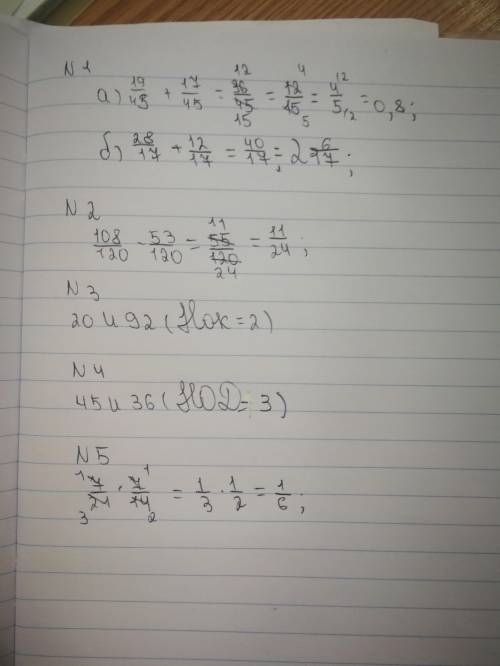 N 1
а) 19/45 + 17/45 = 36/45 = 12/15 = 4/5 = 0,8;
б) 28/17 + 12/17 = 40/17 = 2 6/17;
N 2
108/120 - 53/120 = 55/120 = 11/24;
N 3
20 и 92 (Нок = 2)
N 4
45 и 36 (НОД = 3)
N 5
7/21 · 7/14 = 1/3 · 1/2 = 1/6;